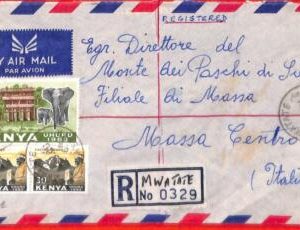 REGISTERED
BY AIR MAIL
PAR AVION
Egr. Direttore del
Monte dei Paschi di
Filiale di Massa
Massa Centro
(Itali
KENYA
UHURU
1963
KENYA
30
KENYA
R
MWATATE
No 0329